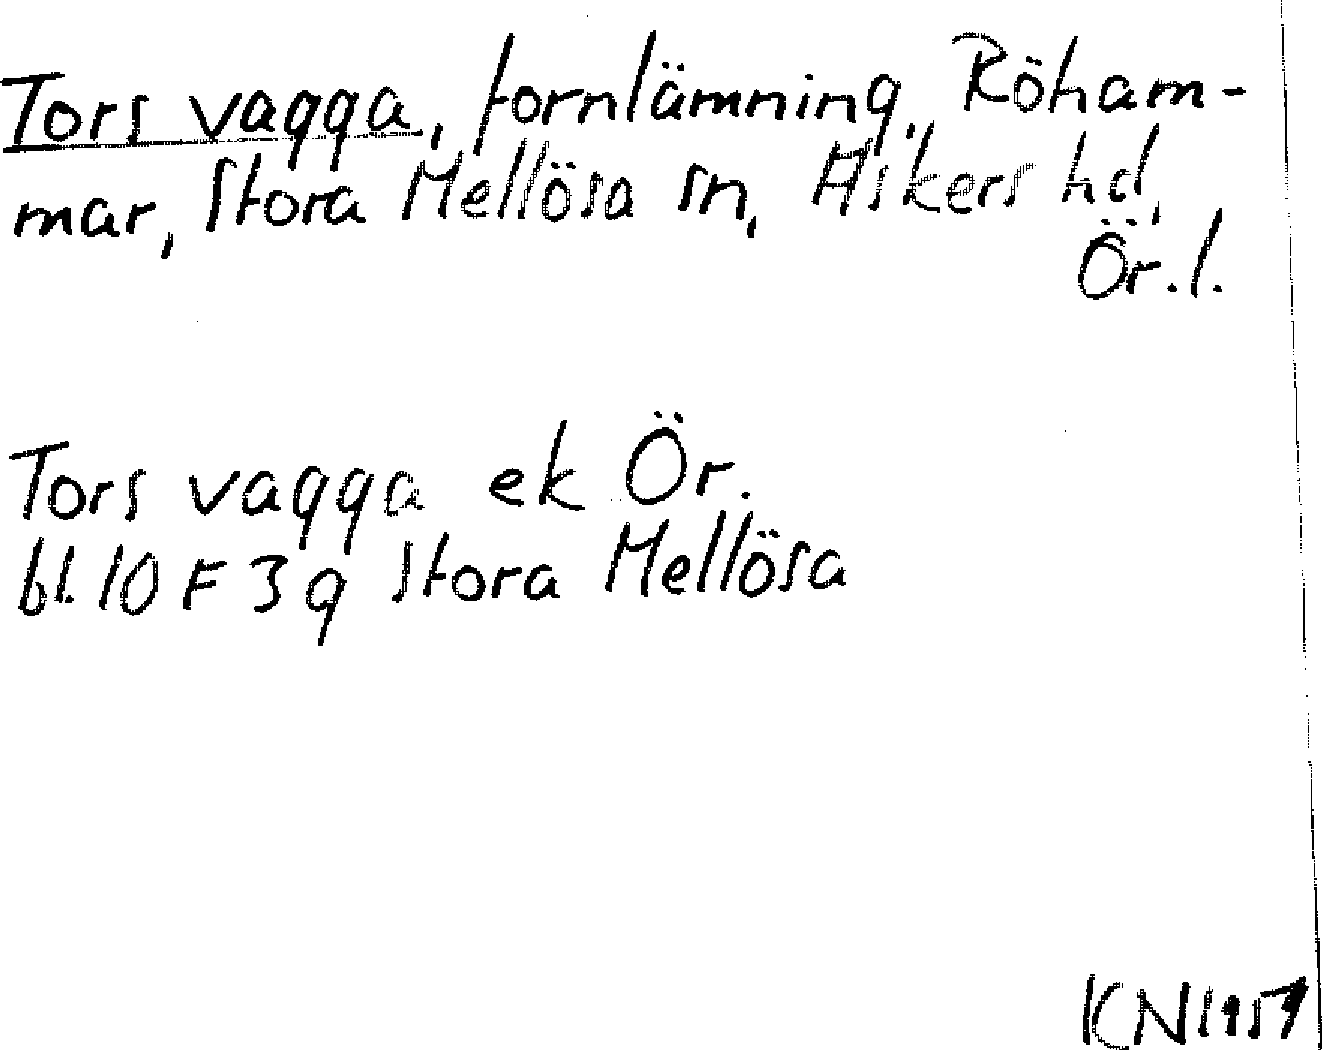 Tors vagga, fornlämning, Röham-
mar, Stora Mellösa sn, Askers hd,
Ör.l.
Tors vagga ek Ör.
bl. 10 F 3 g Stora Mellösa
KN 1957